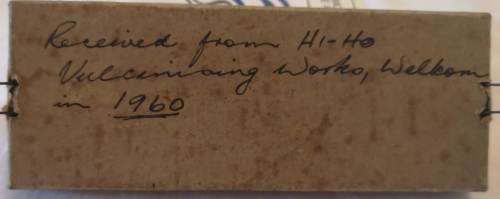 Received from HI-HO
Vulcanising Works, Welkom
in 1960